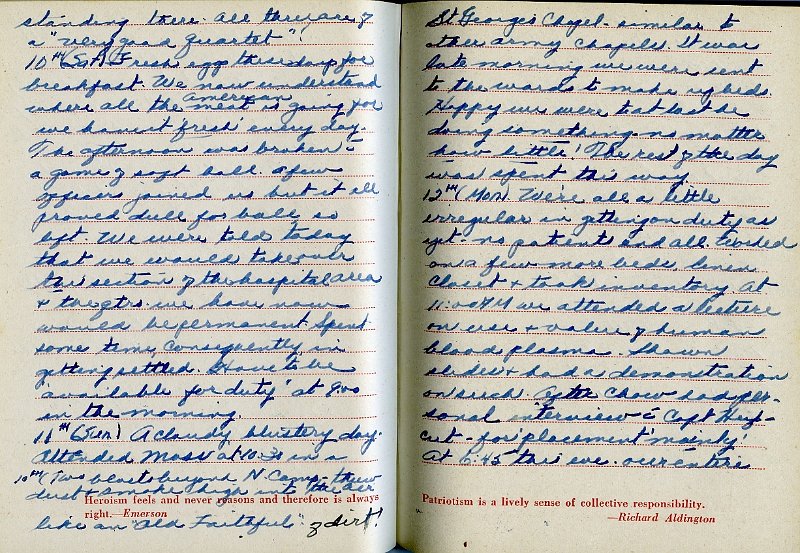 standing there. All three are of
a "very good quartet"!
10th (Sat) Fresh eggs these days for
breakfast. We now understand
where all the American meat is going, for
we haven't 'fresh' every day.
The afternoon was broken c̄
a game of soft ball. A few
officers joined us but it all
proved dull for ball, so
left. We were told today
that we would take over
this section of the hospital area
+ the qtrs. we have now
would be permanent. Spent
some time, consequently, in
getting settled. "Have to be
available for duty" at 8:00
in the morning.
11th (Sun) A cloudy, blustery day.
Attended Mass at 10:30 in a
10th (Two blasts beyond N. Camp - threw
dust & smoke high into the air
Heroism feels and never reasons and therefore is always
right.—Emerson
like an "Old Faithful" of dirt!
St George's Chapel - similar to
other army chapels. It was
late morning we were sent
to the wards to make up beds.
Happy we were that last be
doing something - no matter
how little! The rest of the day
was spent this way.
12th (Mon) We're all a little
irregular in getting on duty as
yet - no patients and all. Worked
on a few more beds, linen
closet + took inventory. At
11:00 AM we attended a lecture
on use + value of human
blood plasma. Shown
slides + had a demonstration
on such. After chow had per-
sonal interview c̄ Capt
- for 'placement' mainly!
At 6:45 this eve. our entire
Patriotism is a lively sense of collective responsibility.
—Richard Aldington